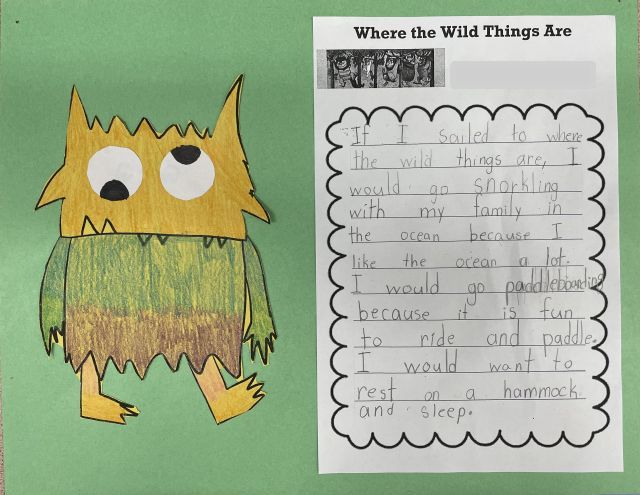 Where the Wild Things Are
If I sailed to where
the wild things are, I
would go snorkling
with my family in
the ocean because I
like the ocean a lot.
I would go paddleboarding
because it is fun
to ride and paddle.
I would want to
rest on a hammock
and sleep.